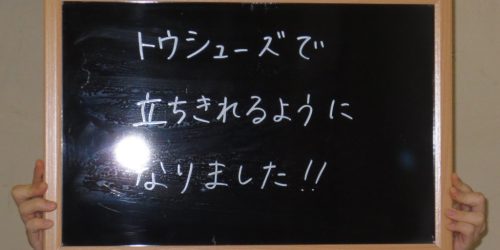 トウシューズで
立ちきれるように
なりました!!